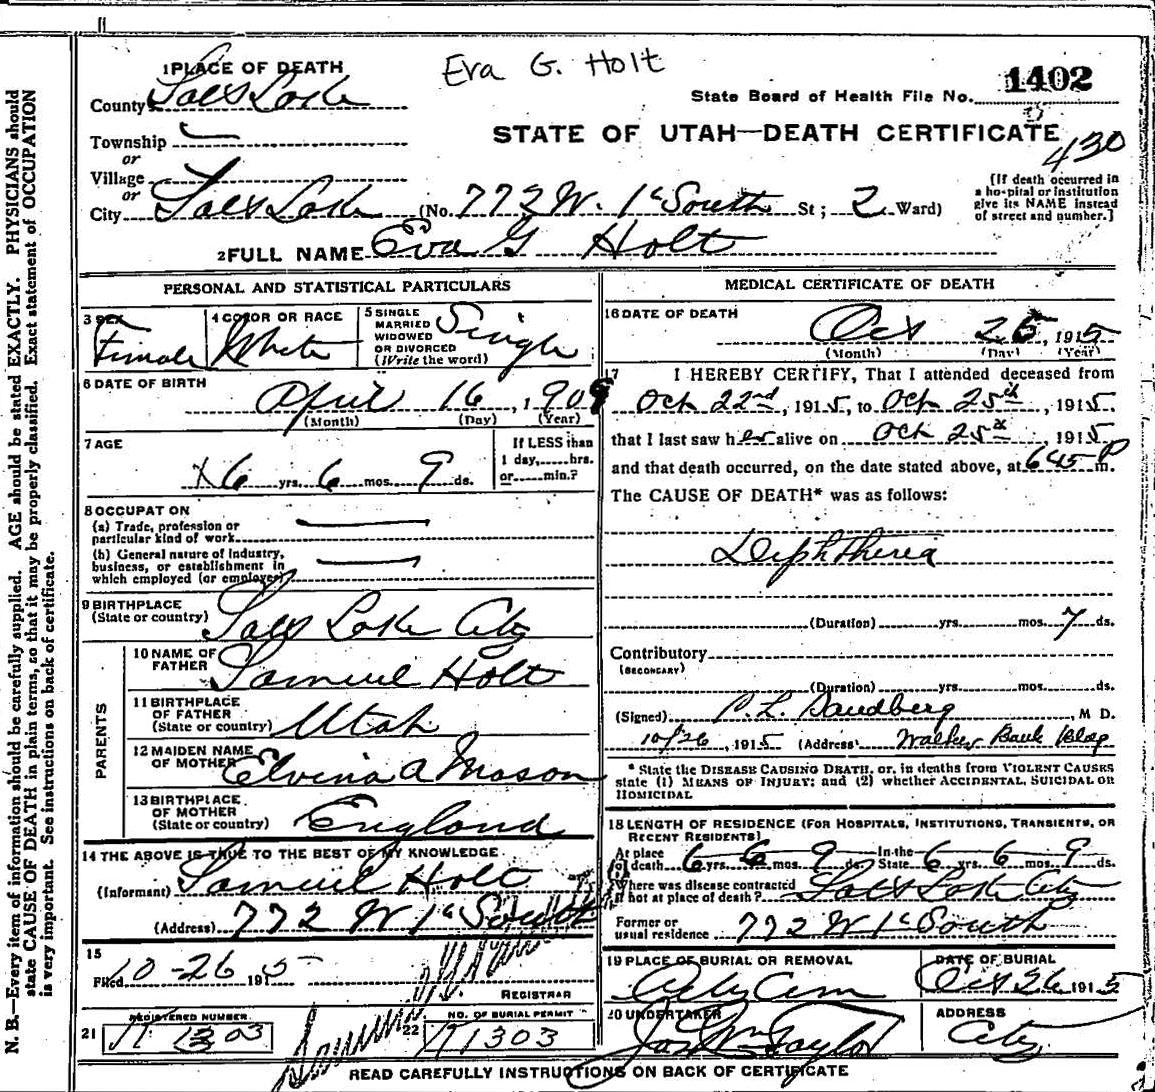 Eva G. Holt
1 PLACE OF DEATH
County Salt Lake
State Board of Health File No. 1402
Township
STATE OF UTAH—DEATH CERTIFICATE
430
or
Village
or
City Salt Lake (No. 772 W. 1st South St; 2 Ward)
[If death occurred in a hospital or institution give its NAME instead of street and number.]
2 FULL NAME Eva G Holt
PERSONAL AND STATISTICAL PARTICULARS
3 SEX Female
4 COLOR OR RACE White
5 SINGLE MARRIED WIDOWED OR DIVORCED (Write the word) Single
6 DATE OF BIRTH
April 16, 1909
(Month) (Day) (Year)
7 AGE
6 yrs. 6 mos. 9 ds.
If LESS than 1 day, hrs. or min.?
8 OCCUPATION
(a) Trade, profession or particular kind of work
(b) General nature of industry, business, or establishment in which employed (or employer)
9 BIRTHPLACE (State or country) Salt Lake City
PARENTS
10 NAME OF FATHER Samuel Holt
11 BIRTHPLACE OF FATHER (State or country) Utah
12 MAIDEN NAME OF MOTHER Elvina A Mason
13 BIRTHPLACE OF MOTHER (State or country) England
14 THE ABOVE IS TRUE TO THE BEST OF MY KNOWLEDGE
(Informant) Samuel Holt
(Address) 772 W 1st South
15
Filed 10-26 1915
REGISTRAR
21 REGISTERED NUMBER 1303
22 NO. OF BURIAL PERMIT 1303
MEDICAL CERTIFICATE OF DEATH
16 DATE OF DEATH
Oct 25, 1915
(Month) (Day) (Year)
17 I HEREBY CERTIFY, That I attended deceased from
Oct 22nd, 1915, to Oct 25th, 1915.
that I last saw her alive on Oct 25th, 1915
and that death occurred, on the date stated above, at 645 P m.
The CAUSE OF DEATH* was as follows:
Diphtheria
(Duration) yrs. mos. 7 ds.
Contributory (SECONDARY)
(Duration) yrs. mos. ds.
(Signed) P. L. Sandberg, M D.
10/26, 1915 (Address) Walker Bank Bldg
* State the DISEASE CAUSING DEATH, or, in deaths from VIOLENT CAUSES state (1) MEANS OF INJURY; and (2) whether ACCIDENTAL, SUICIDAL OR HOMICIDAL
18 LENGTH OF RESIDENCE (FOR HOSPITALS, INSTITUTIONS, TRANSIENTS, OR RECENT RESIDENTS)
At place of death 6 yrs. 6 mos. 9 ds. In the State 6 yrs. 6 mos. 9 ds.
Where was disease contracted if not at place of death? Salt Lake City
Former or usual residence 772 W 1st South
19 PLACE OF BURIAL OR REMOVAL City Cem
DATE OF BURIAL Oct 26 1915
20 UNDERTAKER Taylor
ADDRESS City
READ CAREFULLY INSTRUCTIONS ON BACK OF CERTIFICATE
N. B.—Every item of information should be carefully supplied. AGE should be stated EXACTLY. PHYSICIANS should
state CAUSE OF DEATH in plain terms, so that it may be properly classified. Exact statement of OCCUPATION
is very important. See instructions on back of certificate.